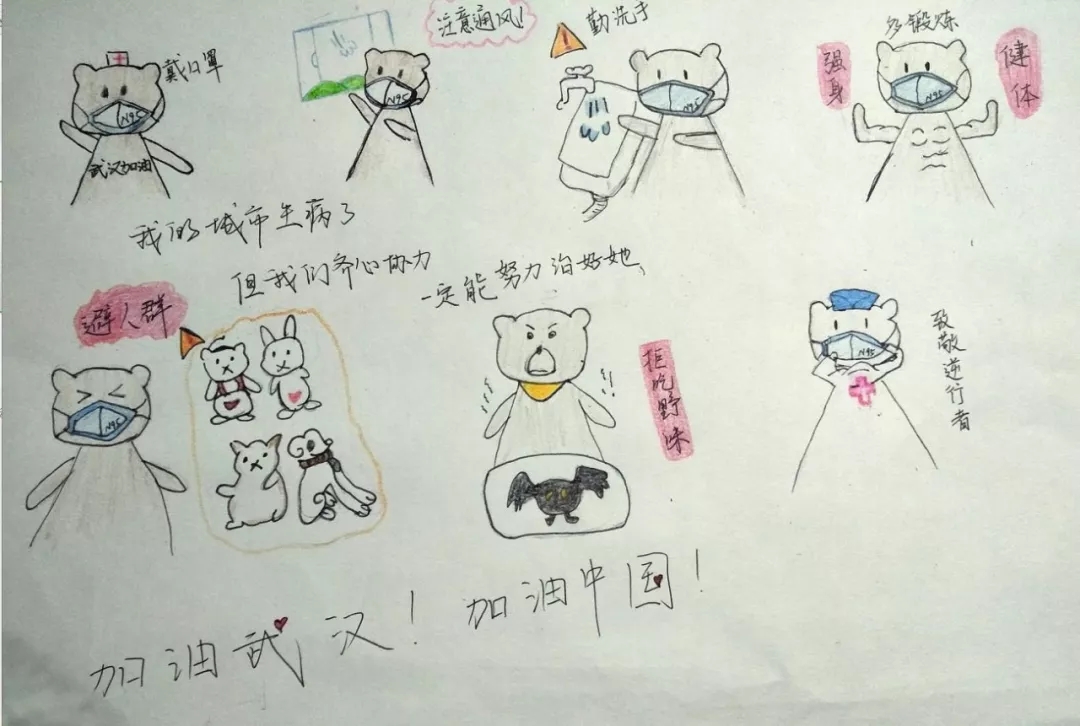 注意通风!
勤洗手
多锻炼
戴口罩
强身
健体
N95
N95
N95
N95
武汉加油
我的城市生病了
但我们齐心协力
一定能努力治好她
避人群
拒吃野味
致敬逆行者
N95
N95
加油武汉!加油中国!